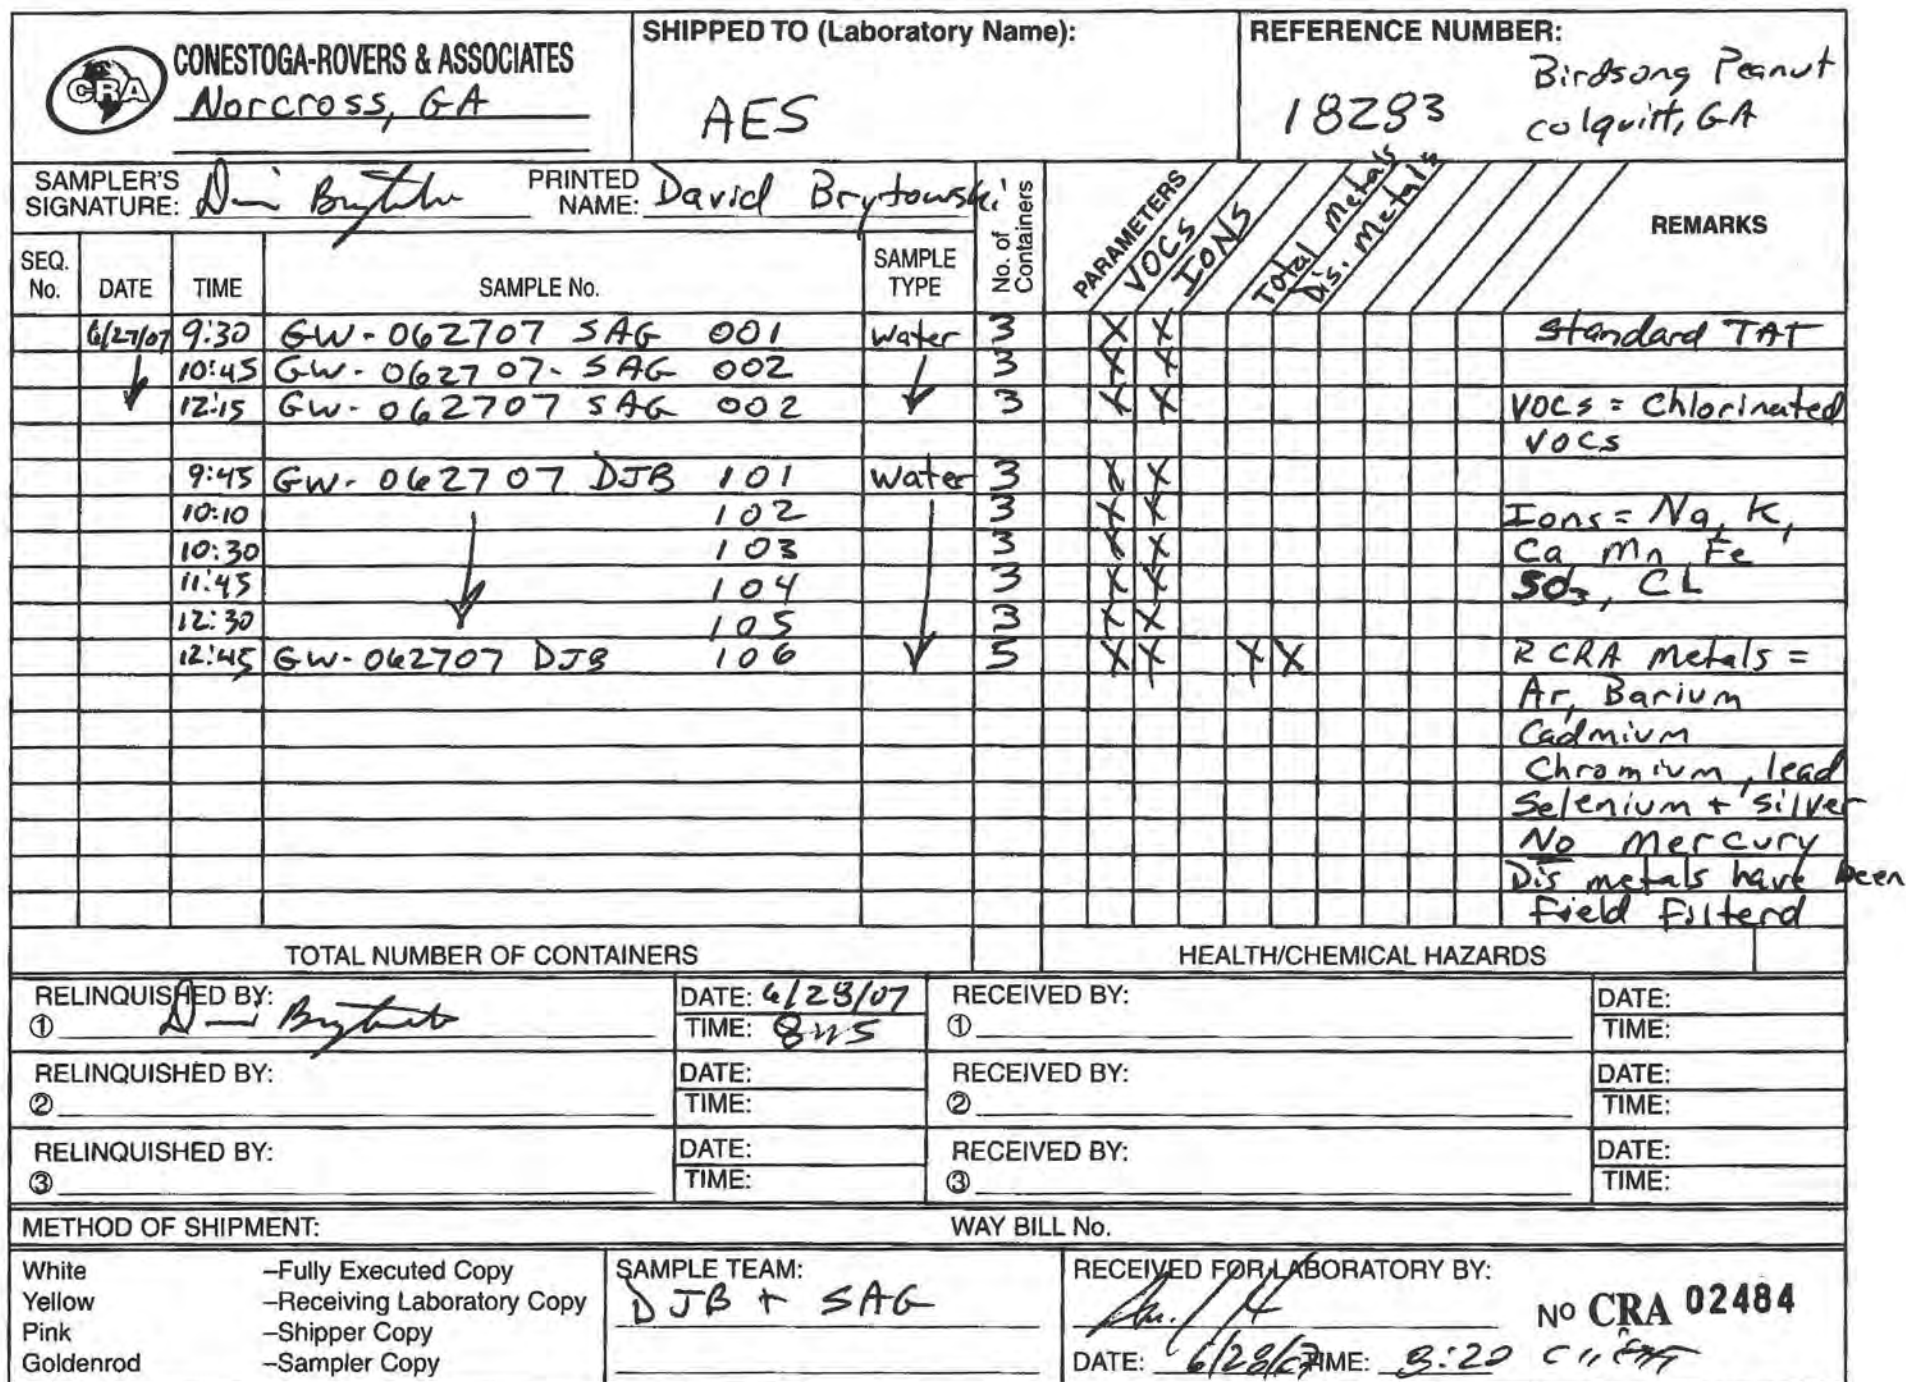 CRA CONESTOGA-ROVERS & ASSOCIATES
Norcross, GA
SHIPPED TO (Laboratory Name):
AES
REFERENCE NUMBER:
18283 Birdsong Peanut
Colquitt, GA
SAMPLER'S SIGNATURE:
PRINTED NAME: David Brytowski
SEQ. No. DATE TIME SAMPLE No. SAMPLE TYPE No. of Containers PARAMETERS VOCs IONS Total Metals Dis. Metals REMARKS
6/27/07 9:30 GW-062707 SAG 001 Water 3 X X Standard TAT
10:45 GW-062707-SAG 002 3 X X
12:15 GW-062707 SAG 002 3 X X VOCs = Chlorinated
VOCs
9:45 GW-062707 DJB 101 Water 3 X X
10:10 102 3 X X Ions = Na, K,
10:30 103 3 X X Ca Mn Fe
11:45 104 3 X X SO3, CL
12:30 105 3 X X
12:45 GW-062707 DJB 106 5 X X X X RCRA Metals =
Ar, Barium
Cadmium
Chromium, lead
Selenium + silver
No Mercury
Dis metals have been
Field Filterd
TOTAL NUMBER OF CONTAINERS HEALTH/CHEMICAL HAZARDS
RELINQUISHED BY: DATE: 6/28/07 RECEIVED BY: DATE:
① TIME: ① TIME:
RELINQUISHED BY: DATE: RECEIVED BY: DATE:
② TIME: ② TIME:
RELINQUISHED BY: DATE: RECEIVED BY: DATE:
③ TIME: ③ TIME:
METHOD OF SHIPMENT: WAY BILL No.
White –Fully Executed Copy
Yellow –Receiving Laboratory Copy
Pink –Shipper Copy
Goldenrod –Sampler Copy
SAMPLE TEAM:
DJB + SAG
RECEIVED FOR LABORATORY BY:
Nº CRA 02484
DATE: 6/28/07 TIME: 8:20 client